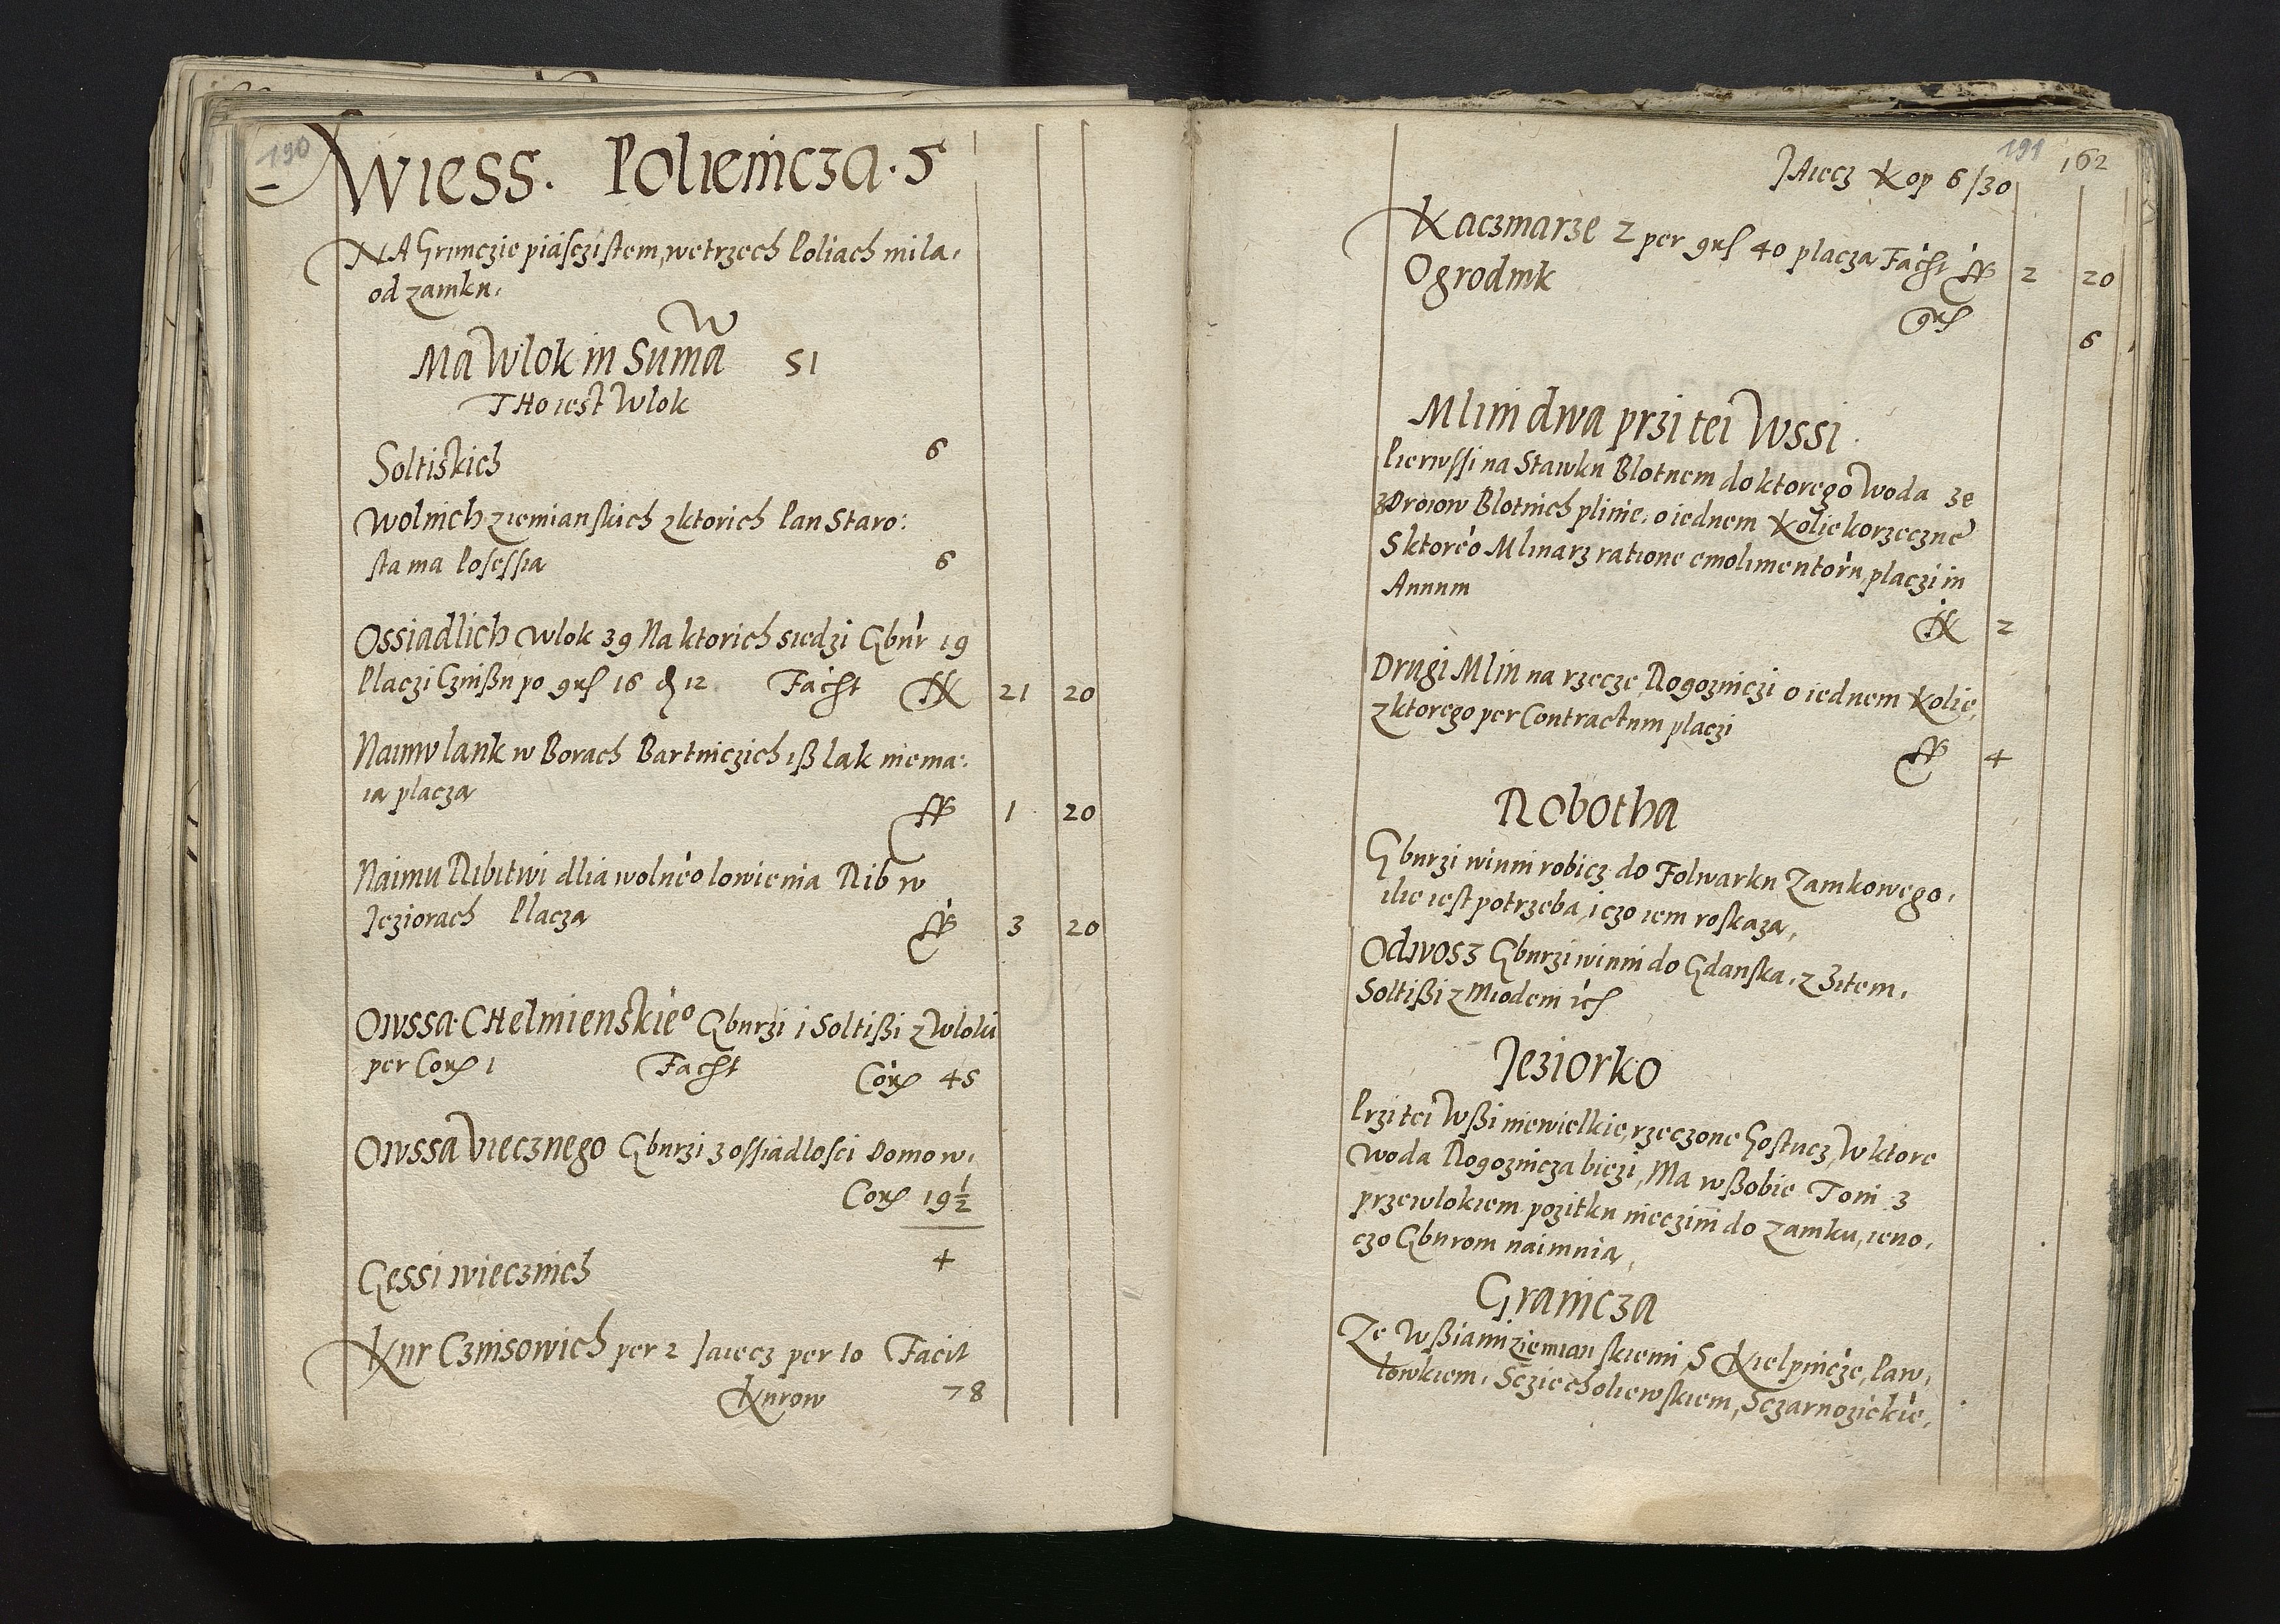 190
WIESS. Poliemcza. 5
NA Grunczie piasczistem, wetrzech Poliach mila,
od zamku,
Ma Wlok in Suma 51
THo iest Wlok
Soltiskich 6
Wolnich ziemianskich zktorich Pan Staro:
sta ma Posessia 6
Ossiadlich Wlok 39 Na ktorich siedzi Gbur 19
Placzi Czinßu po grs 16 d 12 Facit 21 20
Naimu lank w Borach Bartniczich iß lak niema:
ia placza 1 20
Naimu Ribitwi dlia wolneo lowienia Rib w
Jeziorach Placza 3 20
Owssa CHelmienskieo Gburzi i Soltißi z wloki
per Cor 1 Facit Cor 45
Owssa Viecznego Gburzi z ossiadlosci Domow,
Cor 19 1/2
Gessi wiecznich 4
Kur Czinsowich per 2 Jaiecz per 10 Facit
Kurow 78
191 162
JAiecz Kop 6/30
Kaczmarze 2 per grs 40 placza Facit 2 20
Ogrodnik
grs 6
Mlini dwa przi tei Wssi
Pierwssi na Stawku Blotnem do ktorego Woda ze
zDroiow Blotnich plinie, o iednem Kolie korzeczne
Sktoreo Mlinarz ratione emolimentoru, placzi in
Annum
2
Drugi Mlin na rzecze Rogozniczi o iednem Kolie,
zktorego per Contractum placzi
4
Robotha
Gburzi winni robicz do Folwarku Zamkowego,
ilie iest potrzeba, i czo iem roskaza,
Odwosz Gburzi winni do Gdanska, z Zitem,
Soltißi z Miodem ich
Jeziorko
Przi tei Wßi niewielkie, rzeczone Gostucz, Wktore
Woda Rogoznicza bieżi, Ma wßobie Toni 3
przewlokiem pozitku nieczini do Zamku, ieno,
czo Gburom naimuia,
Granicza
Ze Wßiami ziemianskiemi, S Kielpincze, Paw,
lowkiem, Scziecholiewskiem, Sczarnozickie,